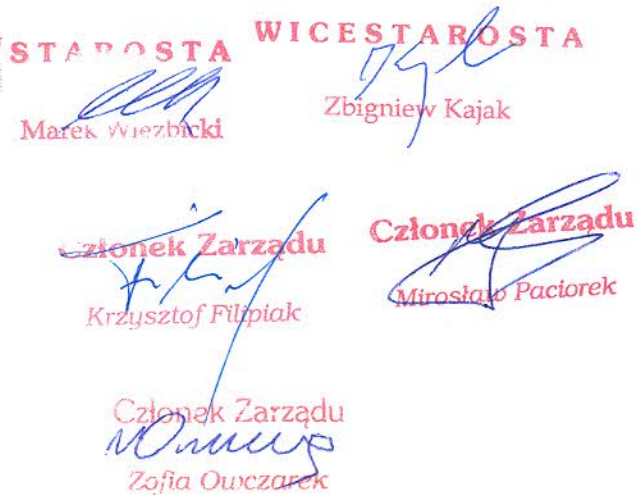 STAROSTA
Marek Wiezbicki
WICESTAROSTA
Zbigniew Kajak
Członek Zarządu
Krzysztof Filipiak
Członek Zarządu
Mirosław Paciorek
Członek Zarządu
Zofia Owczarek